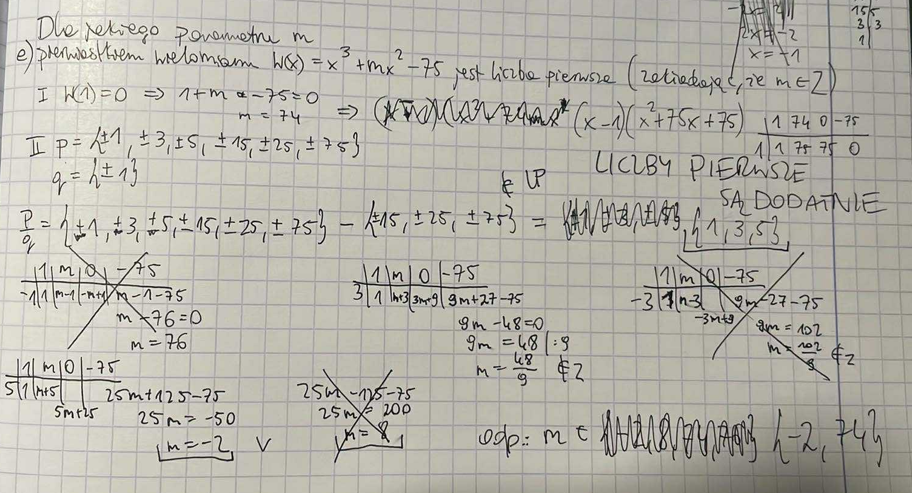 -2x = 2
2x = -2
x = -1
15 5
3 3
1
Dla jakiego parametru m
e) pierwiastkiem wielomianu W(x) = x³ + mx² - 75 jest liczba pierwsza (zakładając, że m ∈ Z)
I W(1) = 0 ⇒ 1 + m - 75 = 0
m = 74 ⇒ (x-1)(x² + 75x + 75)
1 74 0 -75
1 1 75 75 0
II p = {±1, ±3, ±5, ±15, ±25, ±75}
q = {±1}
LICZBY PIERWSZE
SĄ DODATNIE
∉ LP
p/q = {±1, ±3, ±5, ±15, ±25, ±75} - {±15, ±25, ±75} = {1, 3, 5}
1 m 0 -75
-1 1 m-1 -m+1 m-1-75
m - 76 = 0
m = 76
1 m 0 -75
3 1 m+3 3m+9 9m+27-75
9m - 48 = 0
9m = 48 |:9
m = 48/9 ∉ Z
1 m 0 -75
-3 1 m-3 -3m+9 9m-27-75
9m = 102
m = 102/9 ∉ Z
1 m 0 -75
5 1 m+5 5m+25 25m+125-75
25m = -50
m = -2 ∨
25m - 125 - 75
25m = 200
m = 8
odp.: m ∈ {-2, 74}